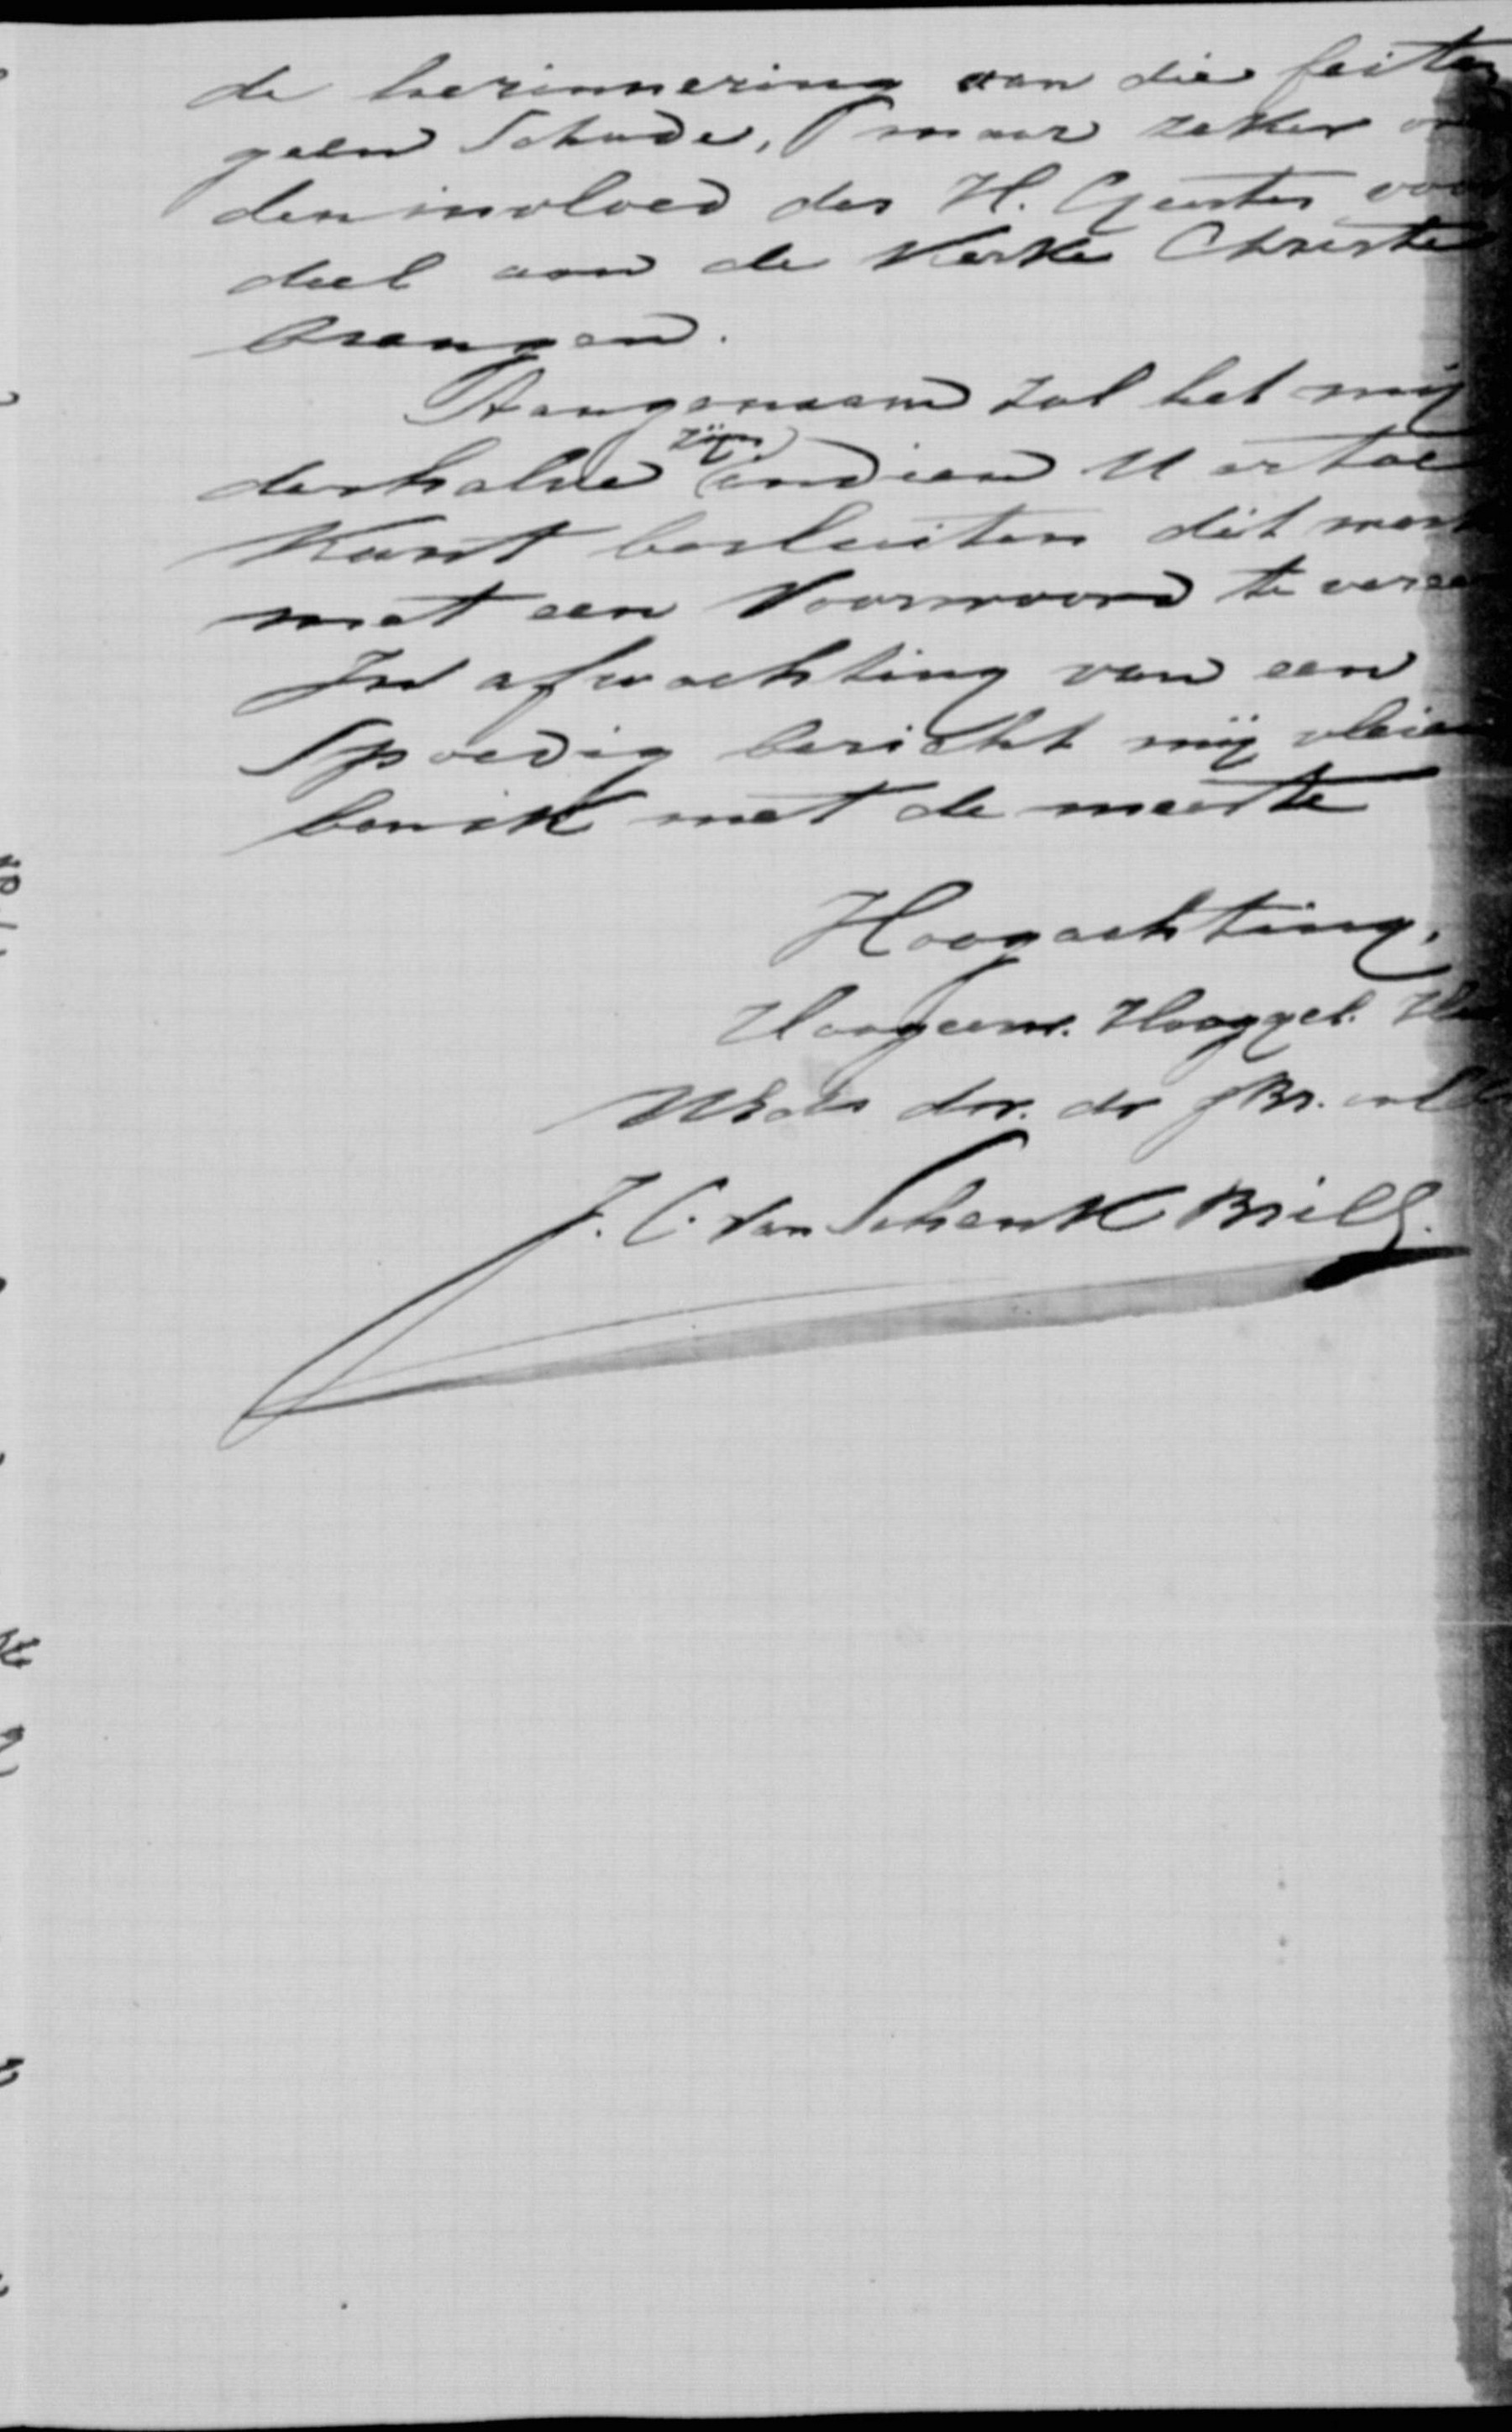 de herinnering aan die feiten
geen Schade, maar zeker
den invloed des H. Geestes voor
deel aan de Kerke Christi
brengen.
Aangenaam zal het mij
derhalve zijn, indien U ertoe
Kunt besluiten dit werk
met een Voorwoord te
In afwachting van een
Spoedig bericht mij vleiend
ben ik met de meeste
Hoogachting,
Hoogeerw. Hooggel.
UEds dw. dr
J. C. van Schenk Brill.